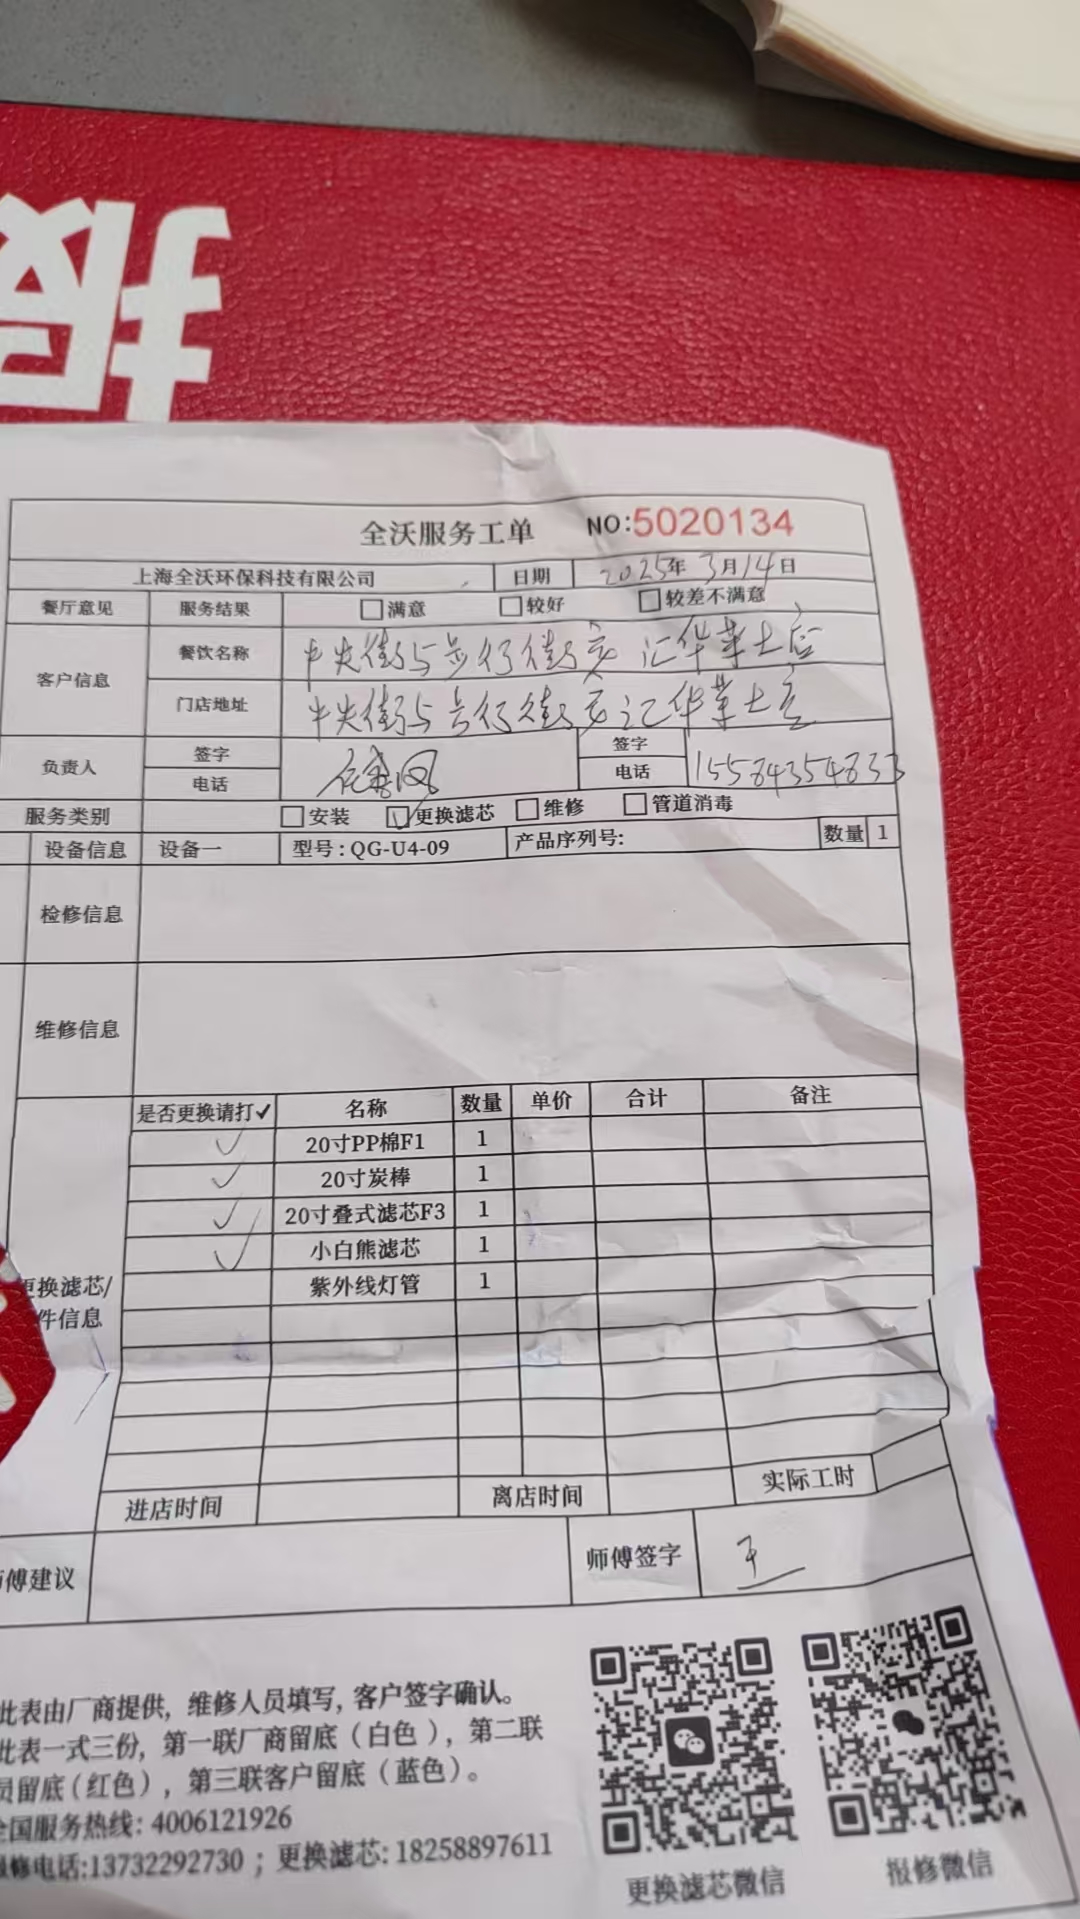 报
全沃服务工单 NO:5020134
上海全沃环保科技有限公司 日期 2025年3月14日
餐厅意见 服务结果 满意 较好 较差不满意
客户信息 餐饮名称 中央街与步行街交汇华莱士店
门店地址 中央街与步行街交汇华莱士店
负责人 签字 签字
电话 电话 15584354833
服务类别 安装 更换滤芯 维修 管道消毒
设备信息 设备一 型号:QG-U4-09 产品序列号: 数量 1
检修信息
维修信息
是否更换请打✓ 名称 数量 单价 合计 备注
✓ 20寸PP棉F1 1
✓ 20寸炭棒 1
✓ 20寸叠式滤芯F3 1
✓ 小白熊滤芯 1
更换滤芯/ 紫外线灯管 1
件信息
进店时间 离店时间 实际工时
傅建议 师傅签字 王
此表由厂商提供,维修人员填写,客户签字确认。
此表一式三份,第一联厂商留底(白色),第二联
员留底(红色),第三联客户留底(蓝色)。
全国服务热线: 4006121926
报修电话:13732292730 ; 更换滤芯: 18258897611
更换滤芯微信 报修微信